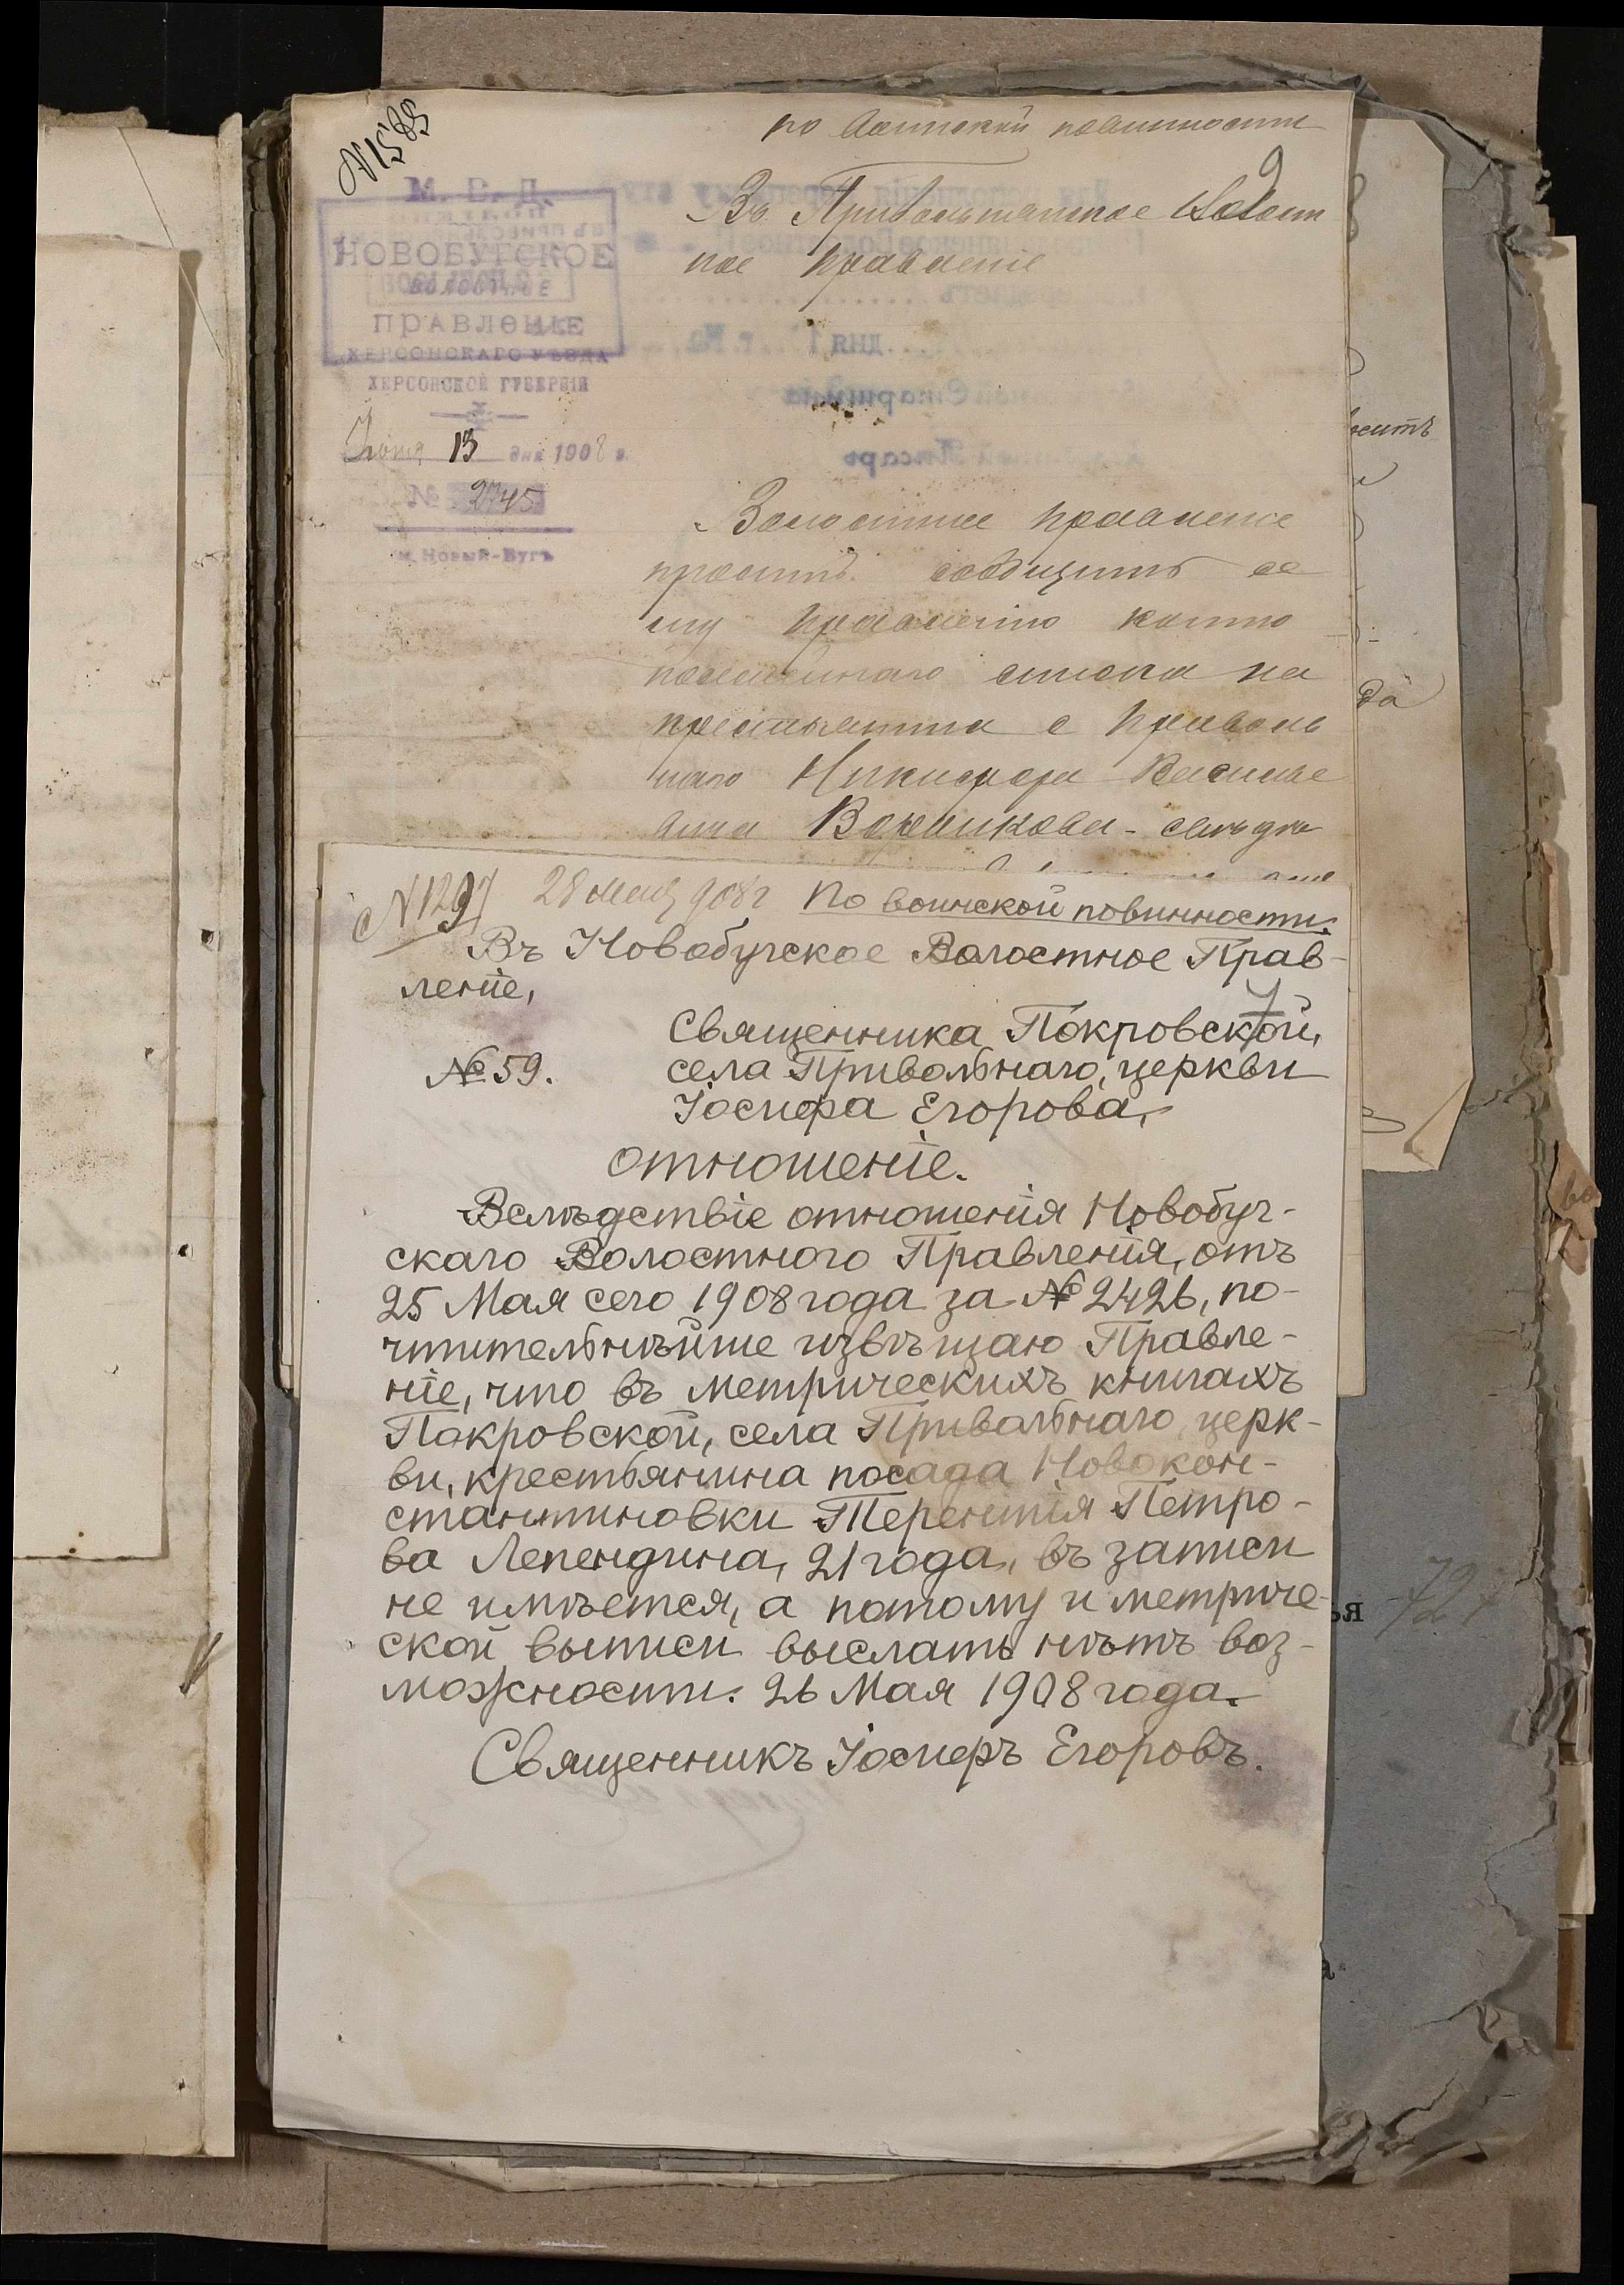 N 1585
по воинской повинности
9
Въ Привольнянское Волост
ное Правленіе
М. В. Д.
НОВОБУГСКОЕ
ВОЛОСТНОЕ
ПРАВЛЕНІЕ
ХЕРСОНСКАГО УѢЗДА
ХЕРСОНСКОЙ ГУБЕРНІИ
Іюня 13 дня 1908 г.
№ 2745
м. Новый-Бугъ
Волостное правленіе
проситъ сообщить се
му Правленію
посемейнаго списка на
крестьянина с Приволь
наго Никифора Василье
вича Воронкова -
N 1297 28 мая 908 г По воинской повинности.
Въ Новобугское Волостное Прав-
леніе,
7
Священника Покровской,
№ 59.
села Привольнаго, церкви
Іосифа Егорова,
отношеніе.
Вслѣдствіе отношенія Новобуг-
скаго Волостного Правленія, отъ
25 Мая сего 1908 года за № 2426, по-
чтительнѣйше извѣщаю Правле-
ніе, что въ метрическихъ книгахъ
Покровской, села Привольнаго, церк-
ви, крестьянина посада Новокон-
стантиновки Терентія Петро-
ва Лепендина, 21 года, въ записи
не имѣется, а потому и метриче-
ской выписи выслать нѣтъ воз-
можности. 26 Мая 1908 года.
Священникъ Іосифъ Егоровъ.